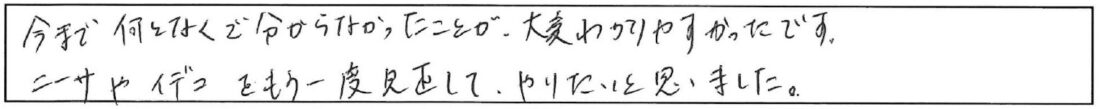 今まで何となくで分からなかったことが、大変わかりやすかったです。
ニーサやイデコをもう一度見直して、やりたいと思いました。